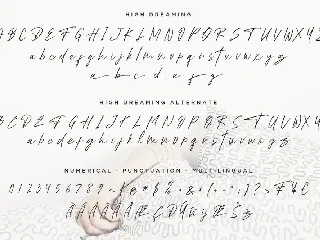 HIGH DREAMING
A B C D E F G H I J K L M N O P Q R S T U V W X Y Z
a b c d e f g h i j k l m n o p q r s t u v w x y z
a b c d
HIGH DREAMING ALTERNATE
A B C D E F G H I J K L M N O P Q R S T U V W X Y Z
a b c d e f g h i j k l m n o p q r s t u v w x y z
NUMERICAL - PUNCTUATION - MULTILINGUAL
0 1 2 3 4 5 6 7 8 9